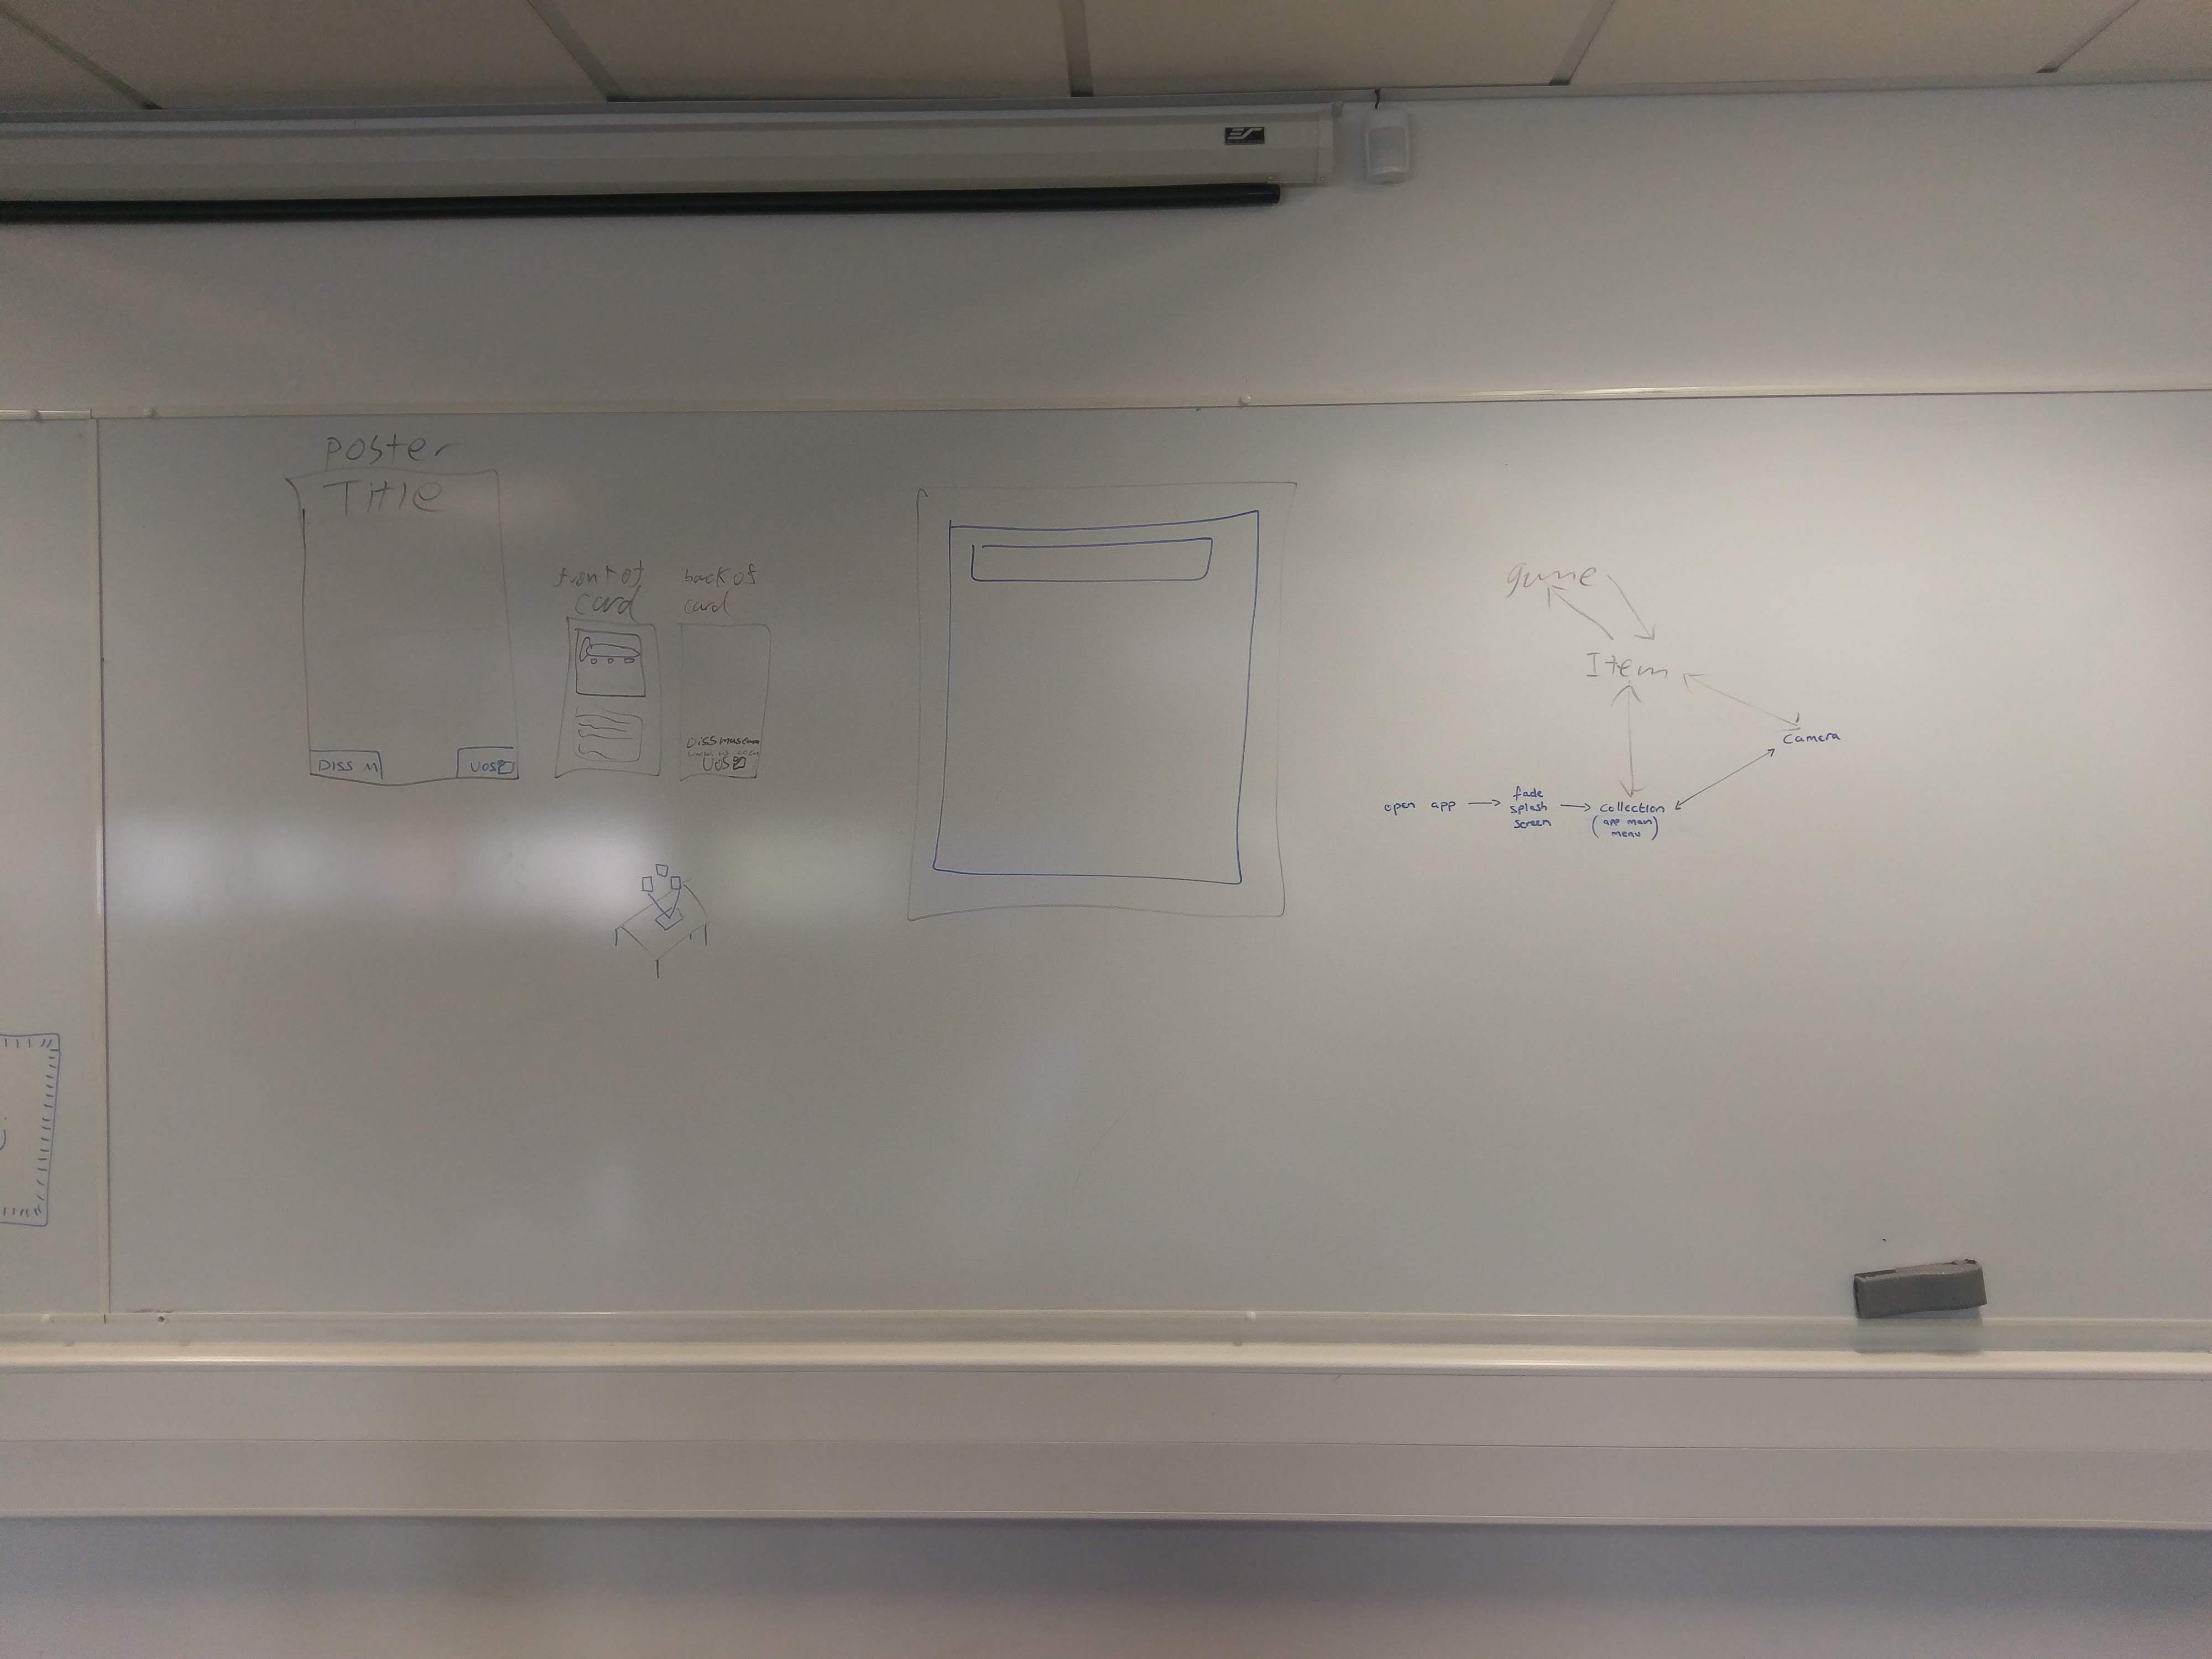 poster
Title
DISS M
UOS
front of
card
back of
card
Diss museum
UOS
game
Item
camera
open app
fade
splash
screen
collection
(app main
menu)